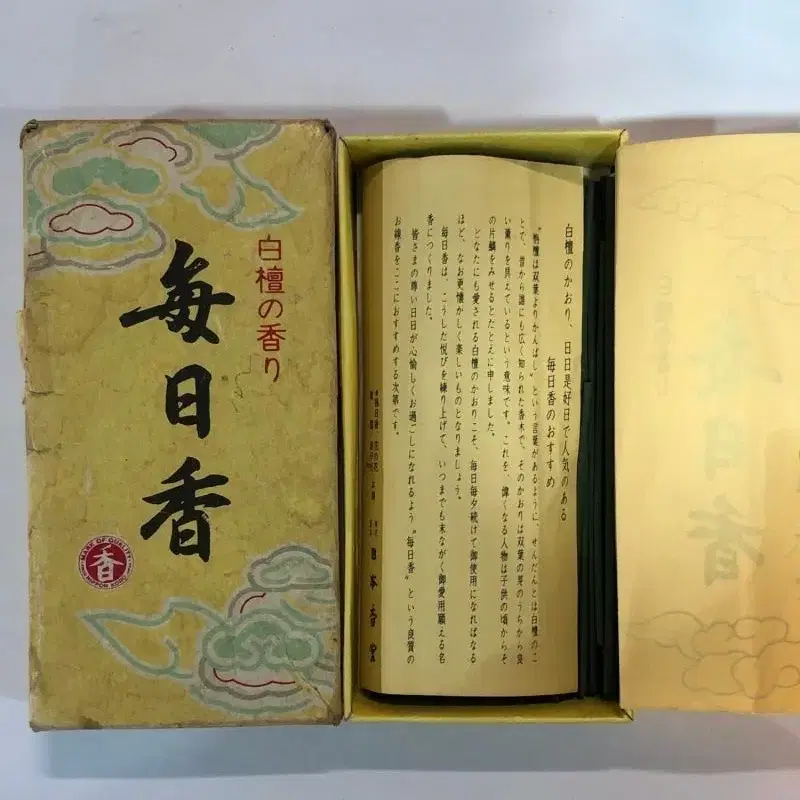 白檀の香り
毎日香
MARK OF QUALITY
香
NIPPON KODO
白檀のかおり、日日是好日で人気のある
毎日香のおすすめ
〝栴檀は双葉よりかんばし〟という言葉があるように、せんだんとは白檀のこ
とで、昔から誰にも広く知られた香木で、そのかおりは双葉の芽のうちから良
い薫りを具えているという意味です。これを、偉くなる人物は子供の頃からそ
の片鱗をみせるとたとえに申しました。
どなたにも愛される白檀のかおりこそ、毎日毎夕続けて御使用になればなる
ほど、なお更懐かしく楽しいものとなりましょう。
毎日香は、こうした悦びを練り上げて、いつまでも末ながく御愛用願える名
香につくりました。
皆さまの尊い日日が心愉しくお過ごしになれるよう〝毎日香〟という良質の
お線香をここにおすすめする次第です。
日本香堂